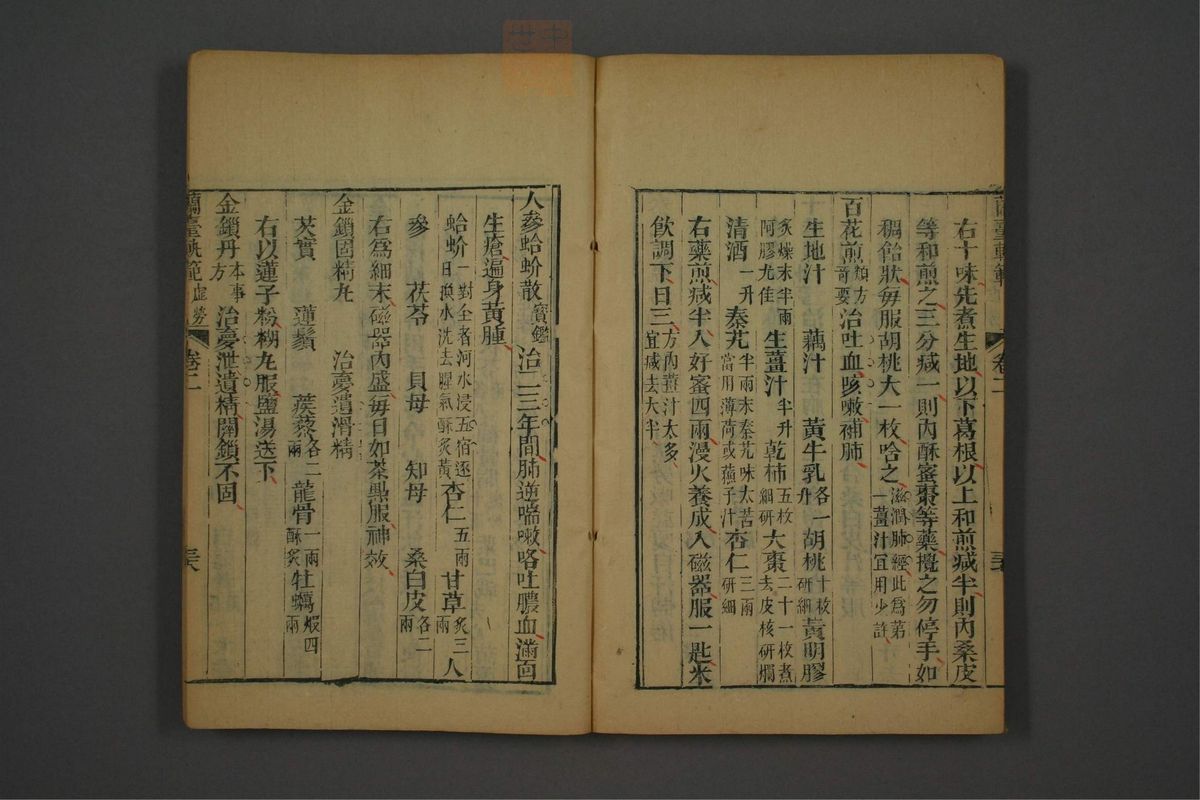 蘭臺軌範 卷二 三六
右十味先煮生地以下葛根以上和煎減半則內桑皮
等和煎之三分減一則內酥蜜棗等藥攪之勿停手如
稠飴狀每服胡桃大一枚啥之滋潤肺經此為第一薑汁宜用少許
百花煎類方奇要治吐血咳嗽補肺
生地汁 藕汁 黃牛乳各一升胡桃十枚研細黃明膠
炙燥末半兩阿膠尤佳生薑汁半升乾柿五枚細研大棗二十一枚煮去皮核研爛
清酒一升秦艽半兩末秦艽味太苦當用薄荷或蘇子汁杏仁三兩研細
右藥煎減半入好蜜四兩漫火養成入磁器服一匙米
飲調下日三方內薑汁太多宜減去大半
人參蛤蚧散寶鑑治二三年間肺逆喘嗽咯吐膿血滿面
生瘡遍身黃腫
蛤蚧一對全者河水浸五宿逐日換水洗去腥氣酥炙黃杏仁五兩甘草炙三兩人
參 茯苓 貝母 知母 桑白皮各二兩
右為細末磁器內盛每日如茶點服神效
金鎖固精丸 治憂遺滑精
芡實 蓮鬚 蒺藜各二兩龍骨一兩酥炙牡蠣煆四兩
右以蓮子粉糊丸服鹽湯送下
金鎖丹本事方 治憂泄遺精關鎖不固
蘭臺軌範虛勞 卷二 三六